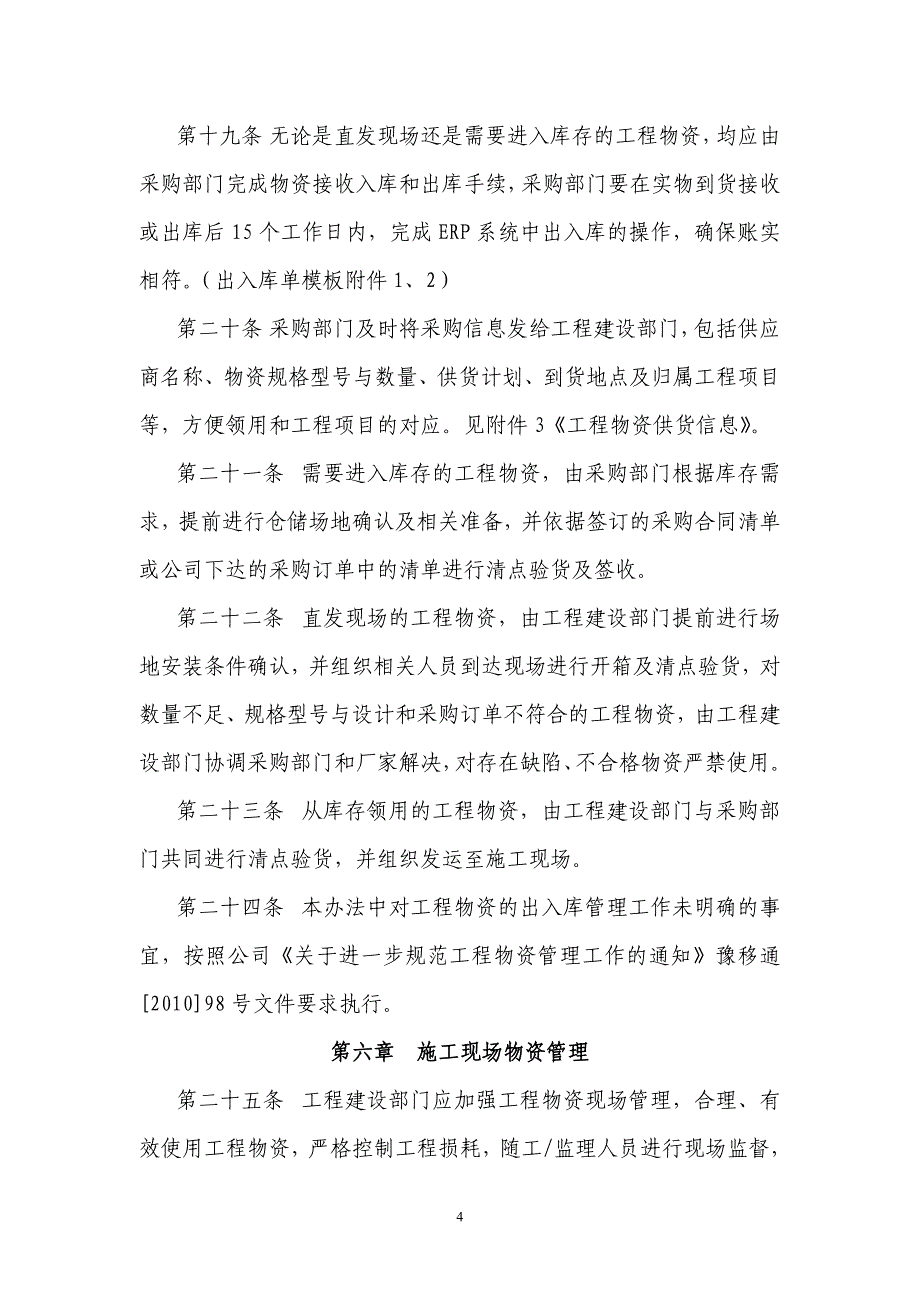 第十九条 无论是直发现场还是需要进入库存的工程物资，均应由
采购部门完成物资接收入库和出库手续，采购部门要在实物到货接收
或出库后 15 个工作日内，完成 ERP 系统中出入库的操作，确保账实
相符。（出入库单模板附件 1、2）
第二十条 采购部门及时将采购信息发给工程建设部门，包括供应
商名称、物资规格型号与数量、供货计划、到货地点及归属工程项目
等，方便领用和工程项目的对应。见附件 3《工程物资供货信息》。
第二十一条 需要进入库存的工程物资，由采购部门根据库存需
求，提前进行仓储场地确认及相关准备，并依据签订的采购合同清单
或公司下达的采购订单中的清单进行清点验货及签收。
第二十二条 直发现场的工程物资，由工程建设部门提前进行场
地安装条件确认，并组织相关人员到达现场进行开箱及清点验货，对
数量不足、规格型号与设计和采购订单不符合的工程物资，由工程建
设部门协调采购部门和厂家解决，对存在缺陷、不合格物资严禁使用。
第二十三条 从库存领用的工程物资，由工程建设部门与采购部
门共同进行清点验货，并组织发运至施工现场。
第二十四条 本办法中对工程物资的出入库管理工作未明确的事
宜，按照公司《关于进一步规范工程物资管理工作的通知》豫移通
[2010]98 号文件要求执行。
第六章 施工现场物资管理
第二十五条 工程建设部门应加强工程物资现场管理，合理、有
效使用工程物资，严格控制工程损耗，随工/监理人员进行现场监督，
4